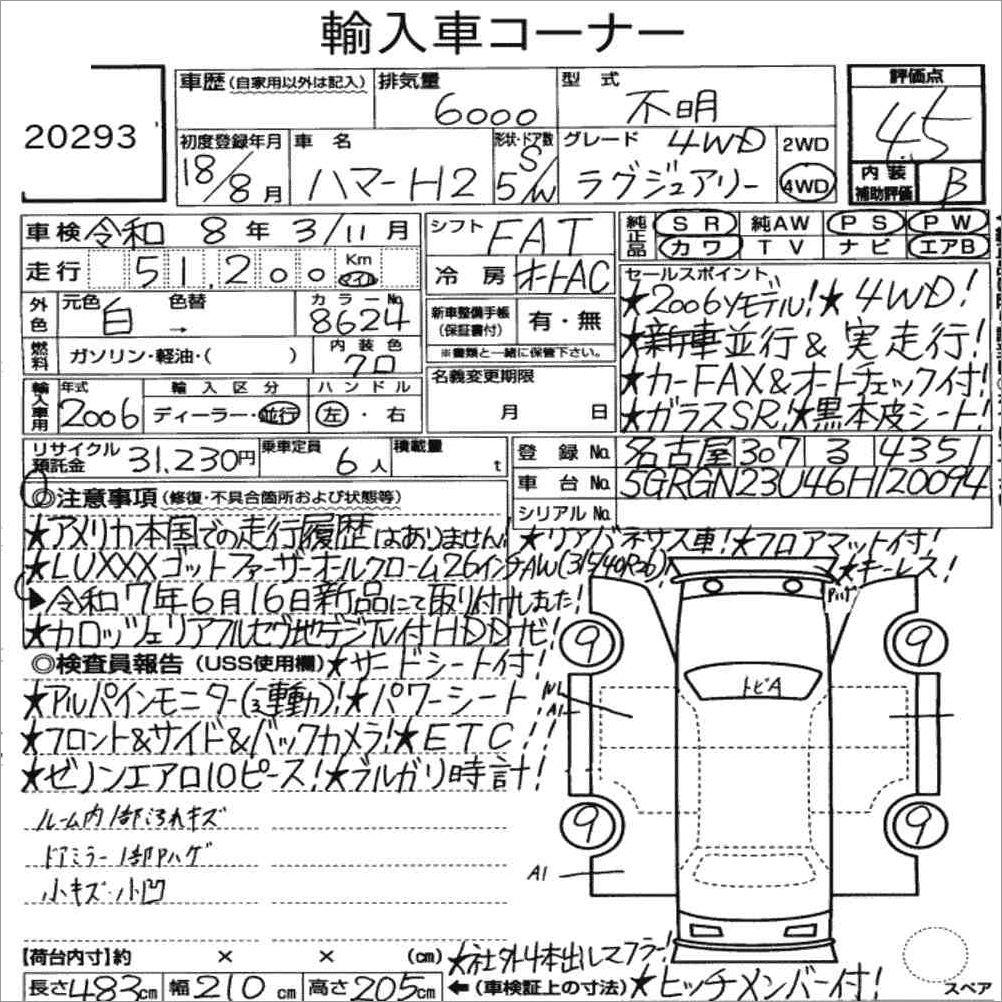 輸入車コーナー
20293
車歴(自家用以外は記入) 排気量 6000 型式 不明 評価点 4.5
初度登録年月 18/8月 車名 ハマーH2 形状・ドア数 S 5/W グレード 4WD ラグジュアリー 2WD 4WD 内装補助評価 B
車検 令和 8年 3/11月 シフト FAT 純正品 SR 純AW PS PW
走行 51,200 Km マイル 冷房 オートAC カワ TV ナビ エアB
外色 元色 白 色替 → カラーNo. 8624 新車整備手帳(保証書付) 有・無 セールスポイント
※書類と一緒に保管下さい。
★2006Yモデル!★4WD!
燃料 ガソリン・軽油・( ) 内装色 クロ 名義変更期限 月 日
★新車並行&実走行!
★カーFAX&オートチェック付!
★ガラスSR!★黒本皮シート!
輸入車用 年式 2006 輸入区分 ディーラー・並行 ハンドル 左・右
リサイクル預託金 31,230円 乗車定員 6人 積載量 t 登録No. 名古屋307 る 4351
車台No. 5GRGN23U46H120094
シリアルNo.
◎注意事項(修復・不具合箇所および状態等)
★アメリカ本国での走行履歴はありません! ★リアバネサス車!★フロアマット付!
★LUXXXゴットファーザーオールクローム26インチAW(315/40R26) ★キーレス!
▶令和7年6月16日新品にて取り付けしました!
★カロッツェリアフルセグ地デジTV付HDDナビ!
◎検査員報告(USS使用欄)★サードシート付!
★アルパインモニター(3連動)!★パワーシート!
★フロント&サイド&バックカメラ!★ETC!
★ゼノンエアロ10ピース!★ブルガリ時計!
ルーム内1部汚れキズ
ドアミラー1部Pハゲ
小キズ・小凹
Pハゲ
9 9
トビA
A1
9 9
A1
【荷台内寸】約 × × (cm) ★社外4本出しマフラー!
長さ483cm 幅210cm 高さ205cm ←(車検証上の寸法)★ヒッチメンバー付! スペア